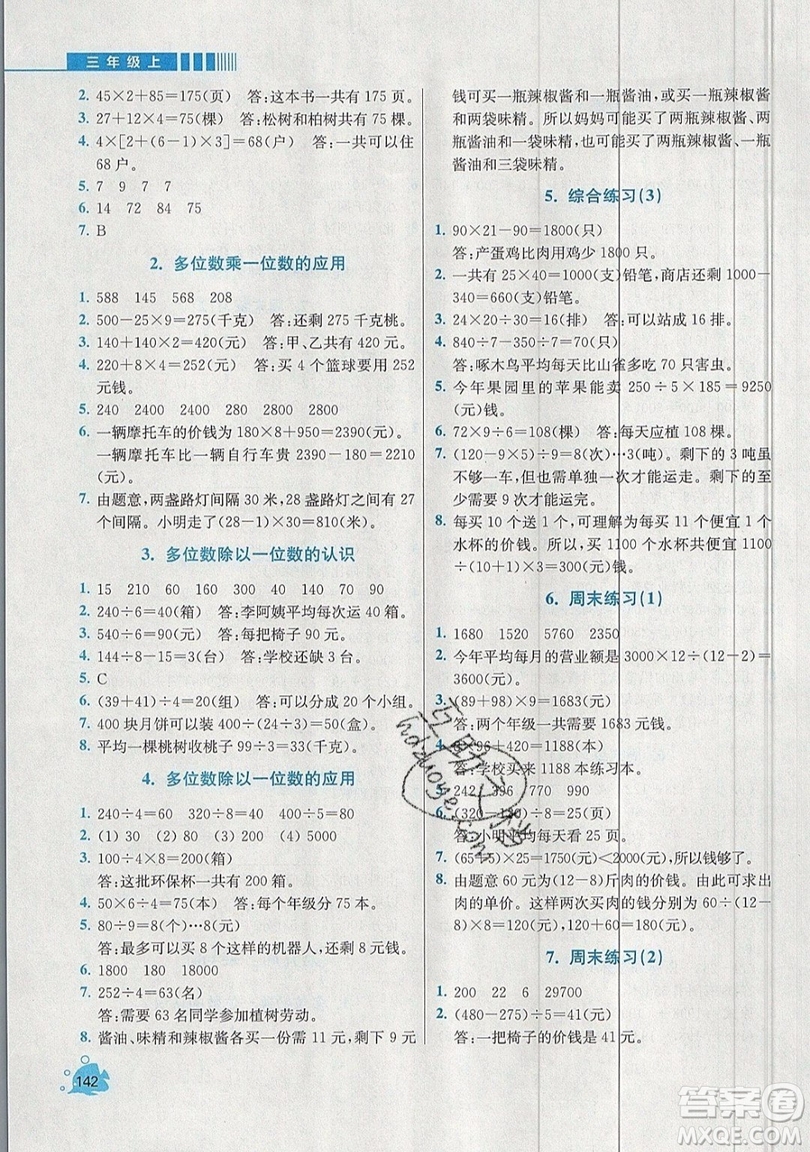 三年级上
2. 45×2+85=175(页)　答:这本书一共有 175 页。
3. 27+12×4=75(棵)　答:松树和柏树共有 75 棵。
4. 4×[2+(6-1)×3]=68(户)　答:一共可以住
68 户。
5. 7　9　7　7
6. 14　72　84　75
7. B
2. 多位数乘一位数的应用
1. 588　145　568　208
2. 500-25×9=275(千克)　答:还剩 275 千克桃。
3. 140+140×2=420(元)　答:甲、乙共有 420 元。
4. 220+8×4=252(元)　答:买 4 个篮球要用 252
元钱。
5. 240　2400　2400　280　2800　2800
6. 一辆摩托车的价钱为 180×8+950=2390(元)。
一辆摩托车比一辆自行车贵 2390-180=2210
(元)。
7. 由题意,两盏路灯间隔 30 米,28 盏路灯之间有 27
个间隔。小明走了(28-1)×30=810(米)。
3. 多位数除以一位数的认识
1. 15　210　60　160　300　40　140　70　90
2. 240÷6=40(箱)　答:李阿姨平均每次运 40 箱。
3. 540÷6=90(元)　答:每把椅子 90 元。
4. 144÷8-15=3(台)　答:学校还缺 3 台。
5. C
6. (39+41)÷4=20(组)　答:可以分成 20 个小组。
7. 400 块月饼可以装(400÷2)÷4=50(盒)。
8. 平均一棵桃树收桃子 99÷3=33(千克)。
4. 多位数除以一位数的应用
1. 240÷4=60　320÷8=40　400÷5=80
2. (1) 30　(2) 40　(3) 80
3. 100÷4×8=200(元)
答:这批环保杯一共有 200 个。
4. 50×6÷4=75(本)　答:每个年级分 75 本。
5. 80÷9=8(个)…8(元)
答:最多可以买 8 个这样的机器人,还剩 8 元钱。
6. 1800　180　1800
7. 252÷4=63(名)
答:需要 63 名同学参加植树劳动。
8. 酱油、味精和辣椒酱各买一份需 11 元,剩下 9 元
142
钱可买一瓶辣椒酱和一瓶酱油,或买一瓶辣椒酱
和两袋味精。所以妈妈可能买了两瓶辣椒酱、一瓶
酱油和三袋味精,也可能买了两瓶辣椒酱、两瓶
酱油和一袋味精。
5. 综合练习(3)
1. 90×21-90=1800(只)
答:产蛋鸡比肉用鸡少 1800 只。
2. 一共有 25×40=1000(支)铅笔,商店还剩 1000-
340=660(支)铅笔。
3. 24×20÷30=16(排)　答:可以站成 16 排。
4. 840÷7-350÷7=70(只)
答:啄木鸟平均每天比山雀多吃 70 只害虫。
5. 今年果园里的苹果能卖 250÷5×185=9250
(元)钱。
6. 72×9÷6=108(棵)　答:每天应植 108 棵。
7. (120-9×5)÷9=8(次)…3(吨)。剩下的 3 吨虽
不够一车,但也需单独一次才能运走。剩下的至少
需要 9 次才能运完。
8. 每买 10 个送 1 个,可理解为每买 11 个便宜 1 个
水杯的价钱。所以,买 1100 个水杯共便宜 1100
÷(10+1)×3=300(元)。
6. 周末练习(1)
1. 1680　1520　5760　2350
2. 今年平均每月的营业额是 3000×12÷(12-2)=
3600(元)。
3. (89+98)×9=1683(元)
答:两个年级一共需要 1683 元钱。
96+420=1188(本)
答:学校买来 1188 本练习本。
242　396　770　990
÷8=25(页)
平均每天看 25 页。
7. (65+5)×25=1750(元)<2000(元),所以钱够了。
8. 由题意 60 元是(12-8)斤肉的价钱。可以此求出
肉的单价。这样两次买肉的钱分别为 60÷(12-
8)×8=120(元),120+60=180(元)。
7. 周末练习(2)
1. 200　22　6　29700
2. (480-275)÷5=41(元)
答:一把椅子的价钱是 41 元。
hdzuoye.com
答案圈
MXQE.COM